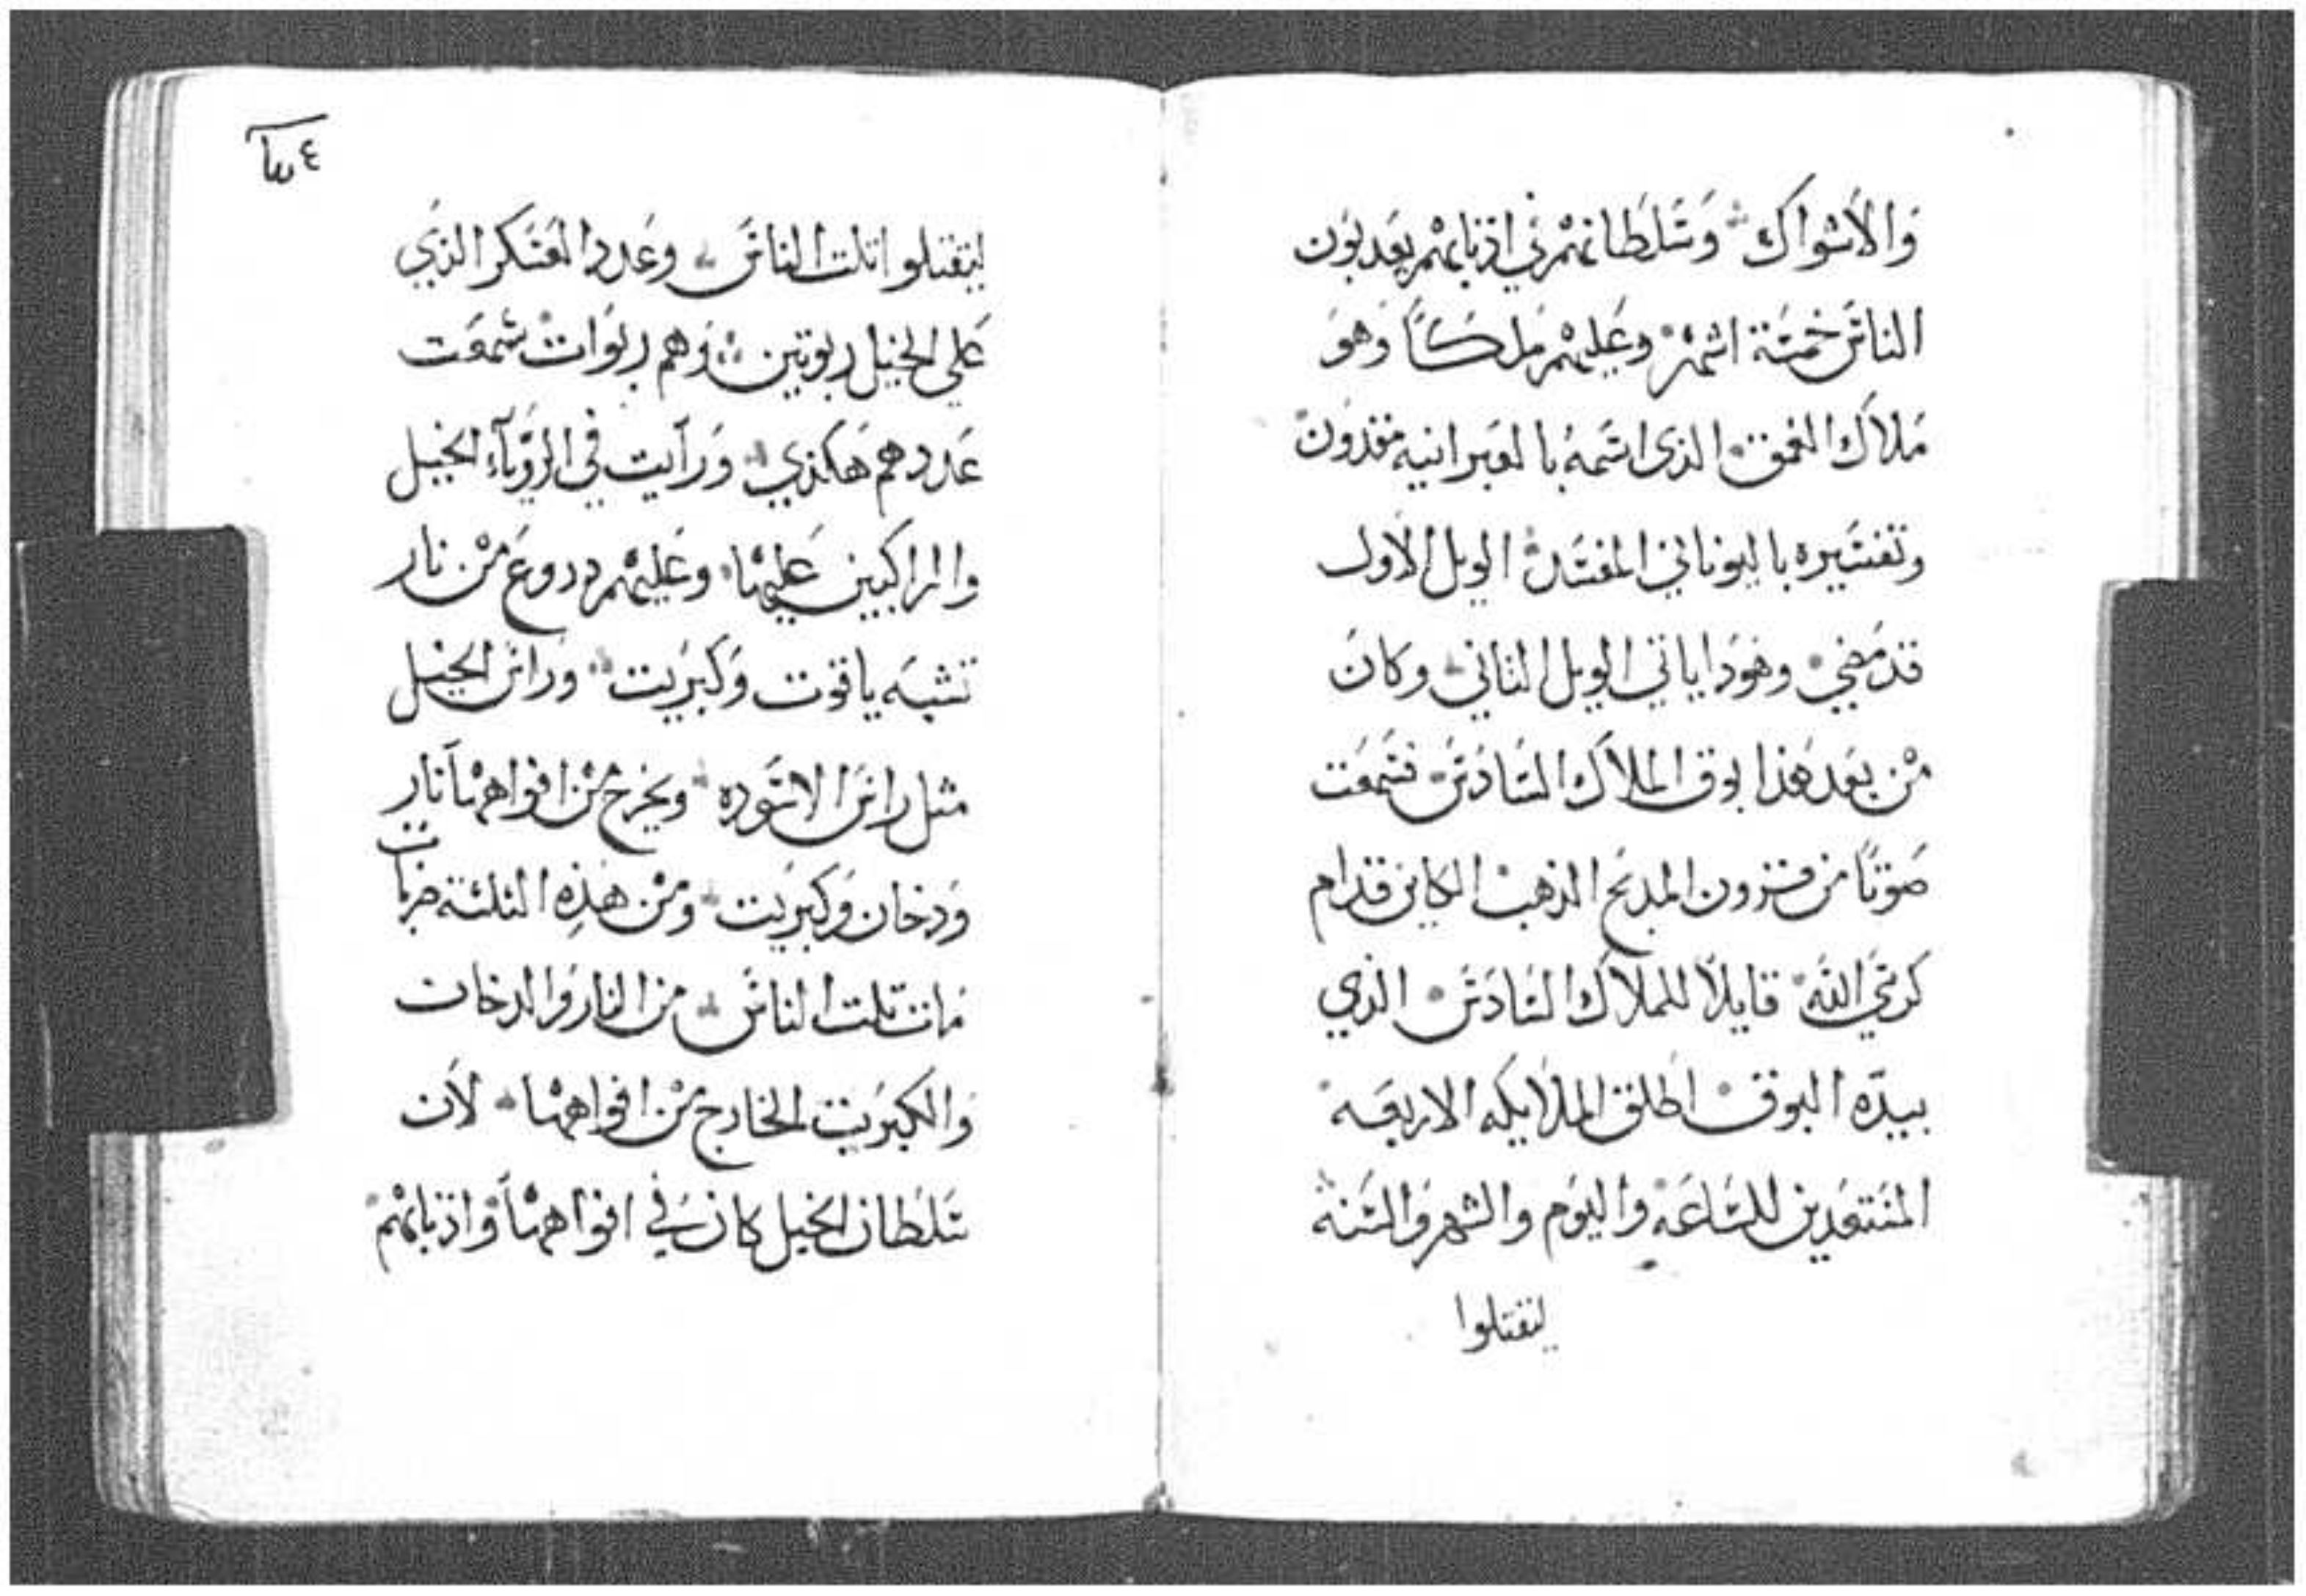 وَالاَشواَك وَسَلطَانهم في اذنابهم يعَدبوُن
الناسَ خمسَة اشهر وعَليهم مَلكاً وَهوَ
مَلاَك العمق الذى اسَمهُ بالعَبرانيه مقدوُن
وتفسَيره باليوناني المفسَد الويل الاَول
قد مَضي وهوَدا ياتي الويل التاني وكانَ
من بَعد هَذا بوق الملاَك السَادَس فسَمعَت
صَوتاً من قرون المدبَح الذهب الكاين قدام
كرسَي اللهَ قايلاً للملاَك السَادَس الذي
بيدَه البوق اطلق الملاَيكه الاربعَه
المسَتعَدين للسَاعَه واليوَم والشهر وَالسَنه
ليقتلوا
٤
ليقتلوا تلت الناسَ وعَدد العَسَكر الذيَ
عَلي الخيل ربوتين وَهم ربَوات سَمعَت
عَددهم هَكذي وَرآيت في الروَيآء الخيل
والراكبين عَليها وعَليهم دروعَ من نار
تشبَه ياقوت وَكبرَيت ورَاسَ الخيل
مثل راسَ الاسَوده ويخرج من افواههاَ نار
وَدخان وَكبرَيت ومن هَذِه الثلثة ضربات
مَات تلت الناسَ من النار وَالدخان
وَالكبرَيت الخارج من افواهها لاَن
سَلطان الخيل كان في افواههاَ واذنابهم